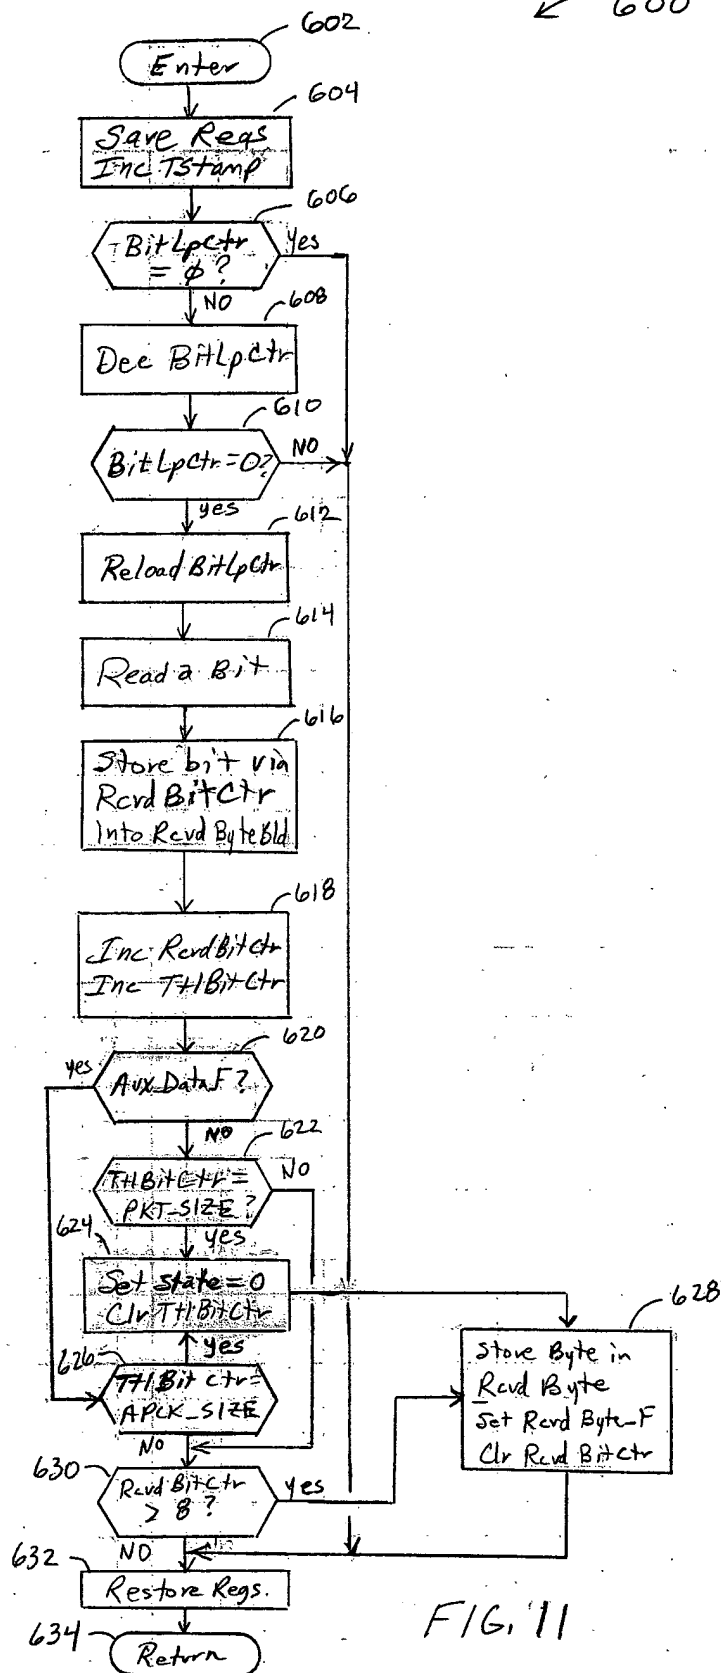 600
602
Enter
604
Save Regs
Inc TStamp
606
BitLpCtr
= ϕ ?
Yes
NO
608
Dec BitLpCtr
610
BitLpCtr=0?
NO
yes
612
Reload BitLpCtr
614
Read a Bit
616
Store bit via
Rcvd BitCtr
Into Rcvd ByteBld
618
Inc RcvdBitCtr
Inc TtlBitCtr
620
yes
Aux_Data_F?
NO
622
TtlBitCtr=
PKT_SIZE?
NO
yes
624
Set state=0
Clr TtlBitCtr
628
Store Byte in
Rcvd Byte
Set Rcvd Byte_F
Clr Rcvd BitCtr
yes
626
TtlBit Ctr=
APCK_SIZE
NO
630
Rcvd BitCtr
> 8 ?
yes
NO
632
Restore Regs.
634
Return
FIG. 11